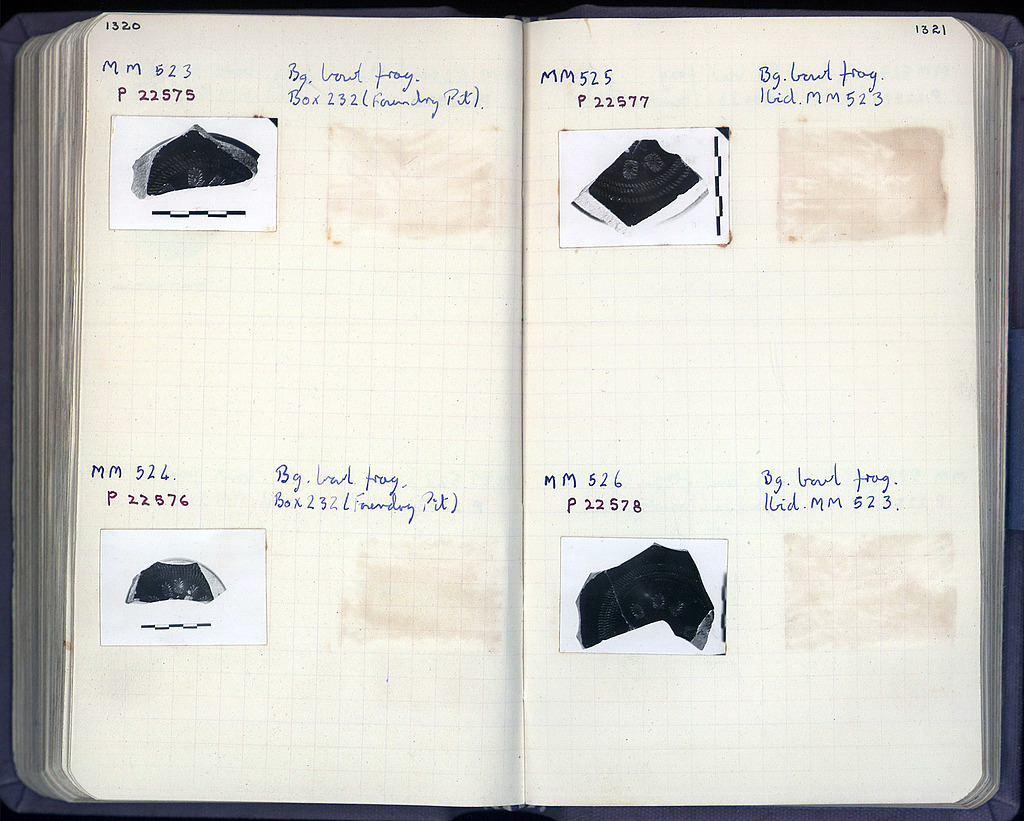 1320
MM 523
P 22575
Bg. bowl frag.
Box 232 (Foundry Pit).
MM 524.
P 22576
Bg. bowl frag.
Box 232 (Foundry Pit)
1321
MM 525
P 22577
Bg. bowl frag.
Ibid. MM 523
MM 526
P 22578
Bg. bowl frag.
Ibid. MM 523.